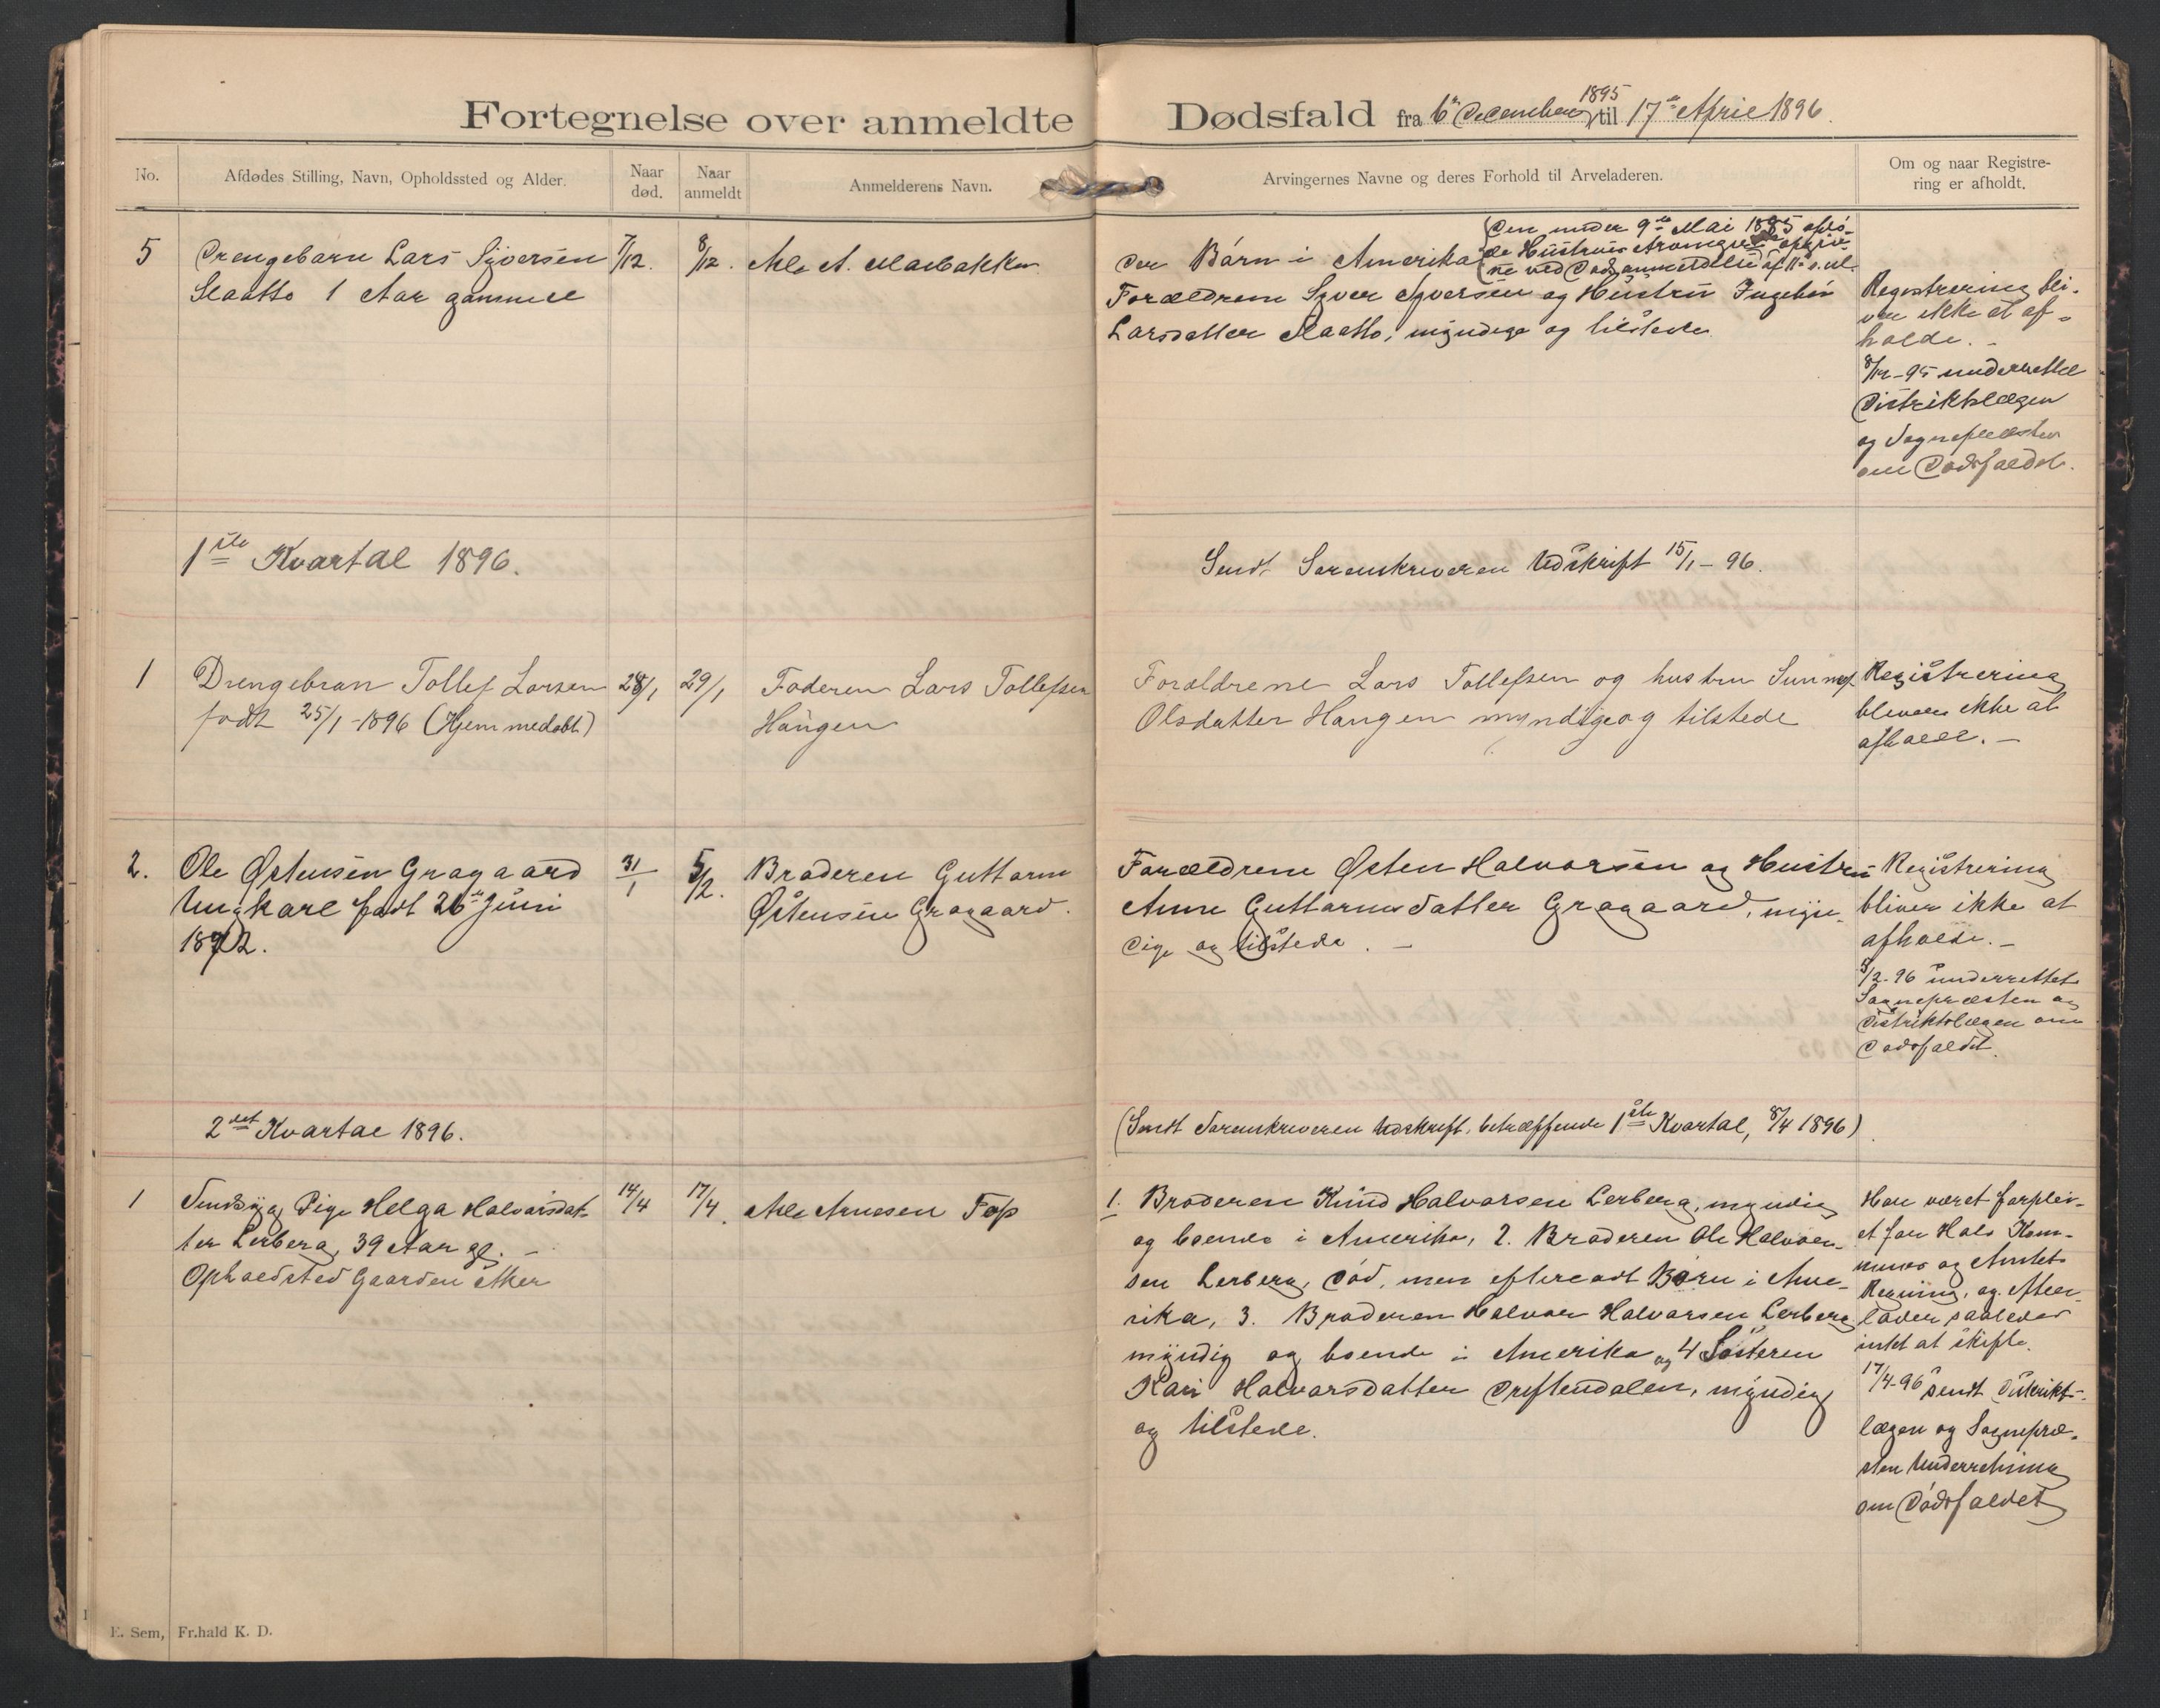 Fortegnelse over anmeldte Dødsfald fra 6te December 1895 til 17de April 1896.
No.
Afdødes Stilling, Navn, Opholdssted og Alder.
Naar død.
Naar anmeldt
Anmelderens Navn.
Arvingernes Navne og deres Forhold til Arveladeren.
Om og naar Registre-
ring er afholdt.
5
Drengebarn Lars Syversen
Slaatto 1 Aar gammel
7/12.
8/12.
Ole A.
(Den under 9de Mai 1885
de Hustrues Arvinger
ne ved Dødsanmeldelse af 11te s. m.
der Børn i Amerika
Forældrene Syver Syversen og Hustru Ingebør
Larsdatter Slaatto, myndige og tilstede.
Registrering bli-
ver ikke at af-
holde. -
8/12-95 underrettet
Distriktslægen
og Sognepresten
om Dødsfaldet.
1ste Kvartal 1896.
Sendt Sorenskriveren Udskrift 15/1 - 96.
1
Drengebran Tollef Larsen
født 25/1-1896 (Hjemmedøbt)
28/1
29/1
Faderen Lars Tollefsen
Haugen
Forældrene Lars Tollefsen og hustru Sunnef
Olsdatter Haugen myndige og tilstede
Registrering
bliver ikke at
afholde. -
2.
Ole Østensen Gragaard
Ungkarl født 26de Juni
1872.
31/1
5/2.
Broderen Guttorm
Østensen Gragaard.
Forældrene Østen Halvorsen og Hustru
Anne Guttormsdatter Gragaard, myn-
dige og tilstede. -
Registrering
bliver ikke at
afholde. -
5/2-96 underrettet
Sognepræsten og
Distriktslægen om
Dødsfaldet.
2det Kvartal 1896.
(Sendt Sorenskriveren Udskrift, betræffende 1ste Kvartal, 8/4 1896)
1
Sindsyg Pige Helga Halvorsdat-
ter Lerberg, 39 Aar gl. -
Opholdsted Gaarden Aker
14/4
17/4.
Ole Arnesen Fop
1. Broderen Knud Halvorsen Lerberg, myndig
og boende i Amerika, 2. Broderen Ole Halvor-
sen Lerberg, død, men efterladt Børn i Ame-
rika, 3. Broderen Halvor Halvorsen Lerberg
myndig og boende i Amerika og 4 Søsteren
Kari Halvorsdatter Driftendalen, myndig
og tilstede.
Har været forplei-
et for Hols Kom-
munes og Amtets
Regning, og efter-
lader saaledes
intet at skifte.
17/4-96 sendt Distrikt-
lægen og Sognepræ-
sten Underretning
om Dødsfaldet
E. Sem, Fr.hald K. D.